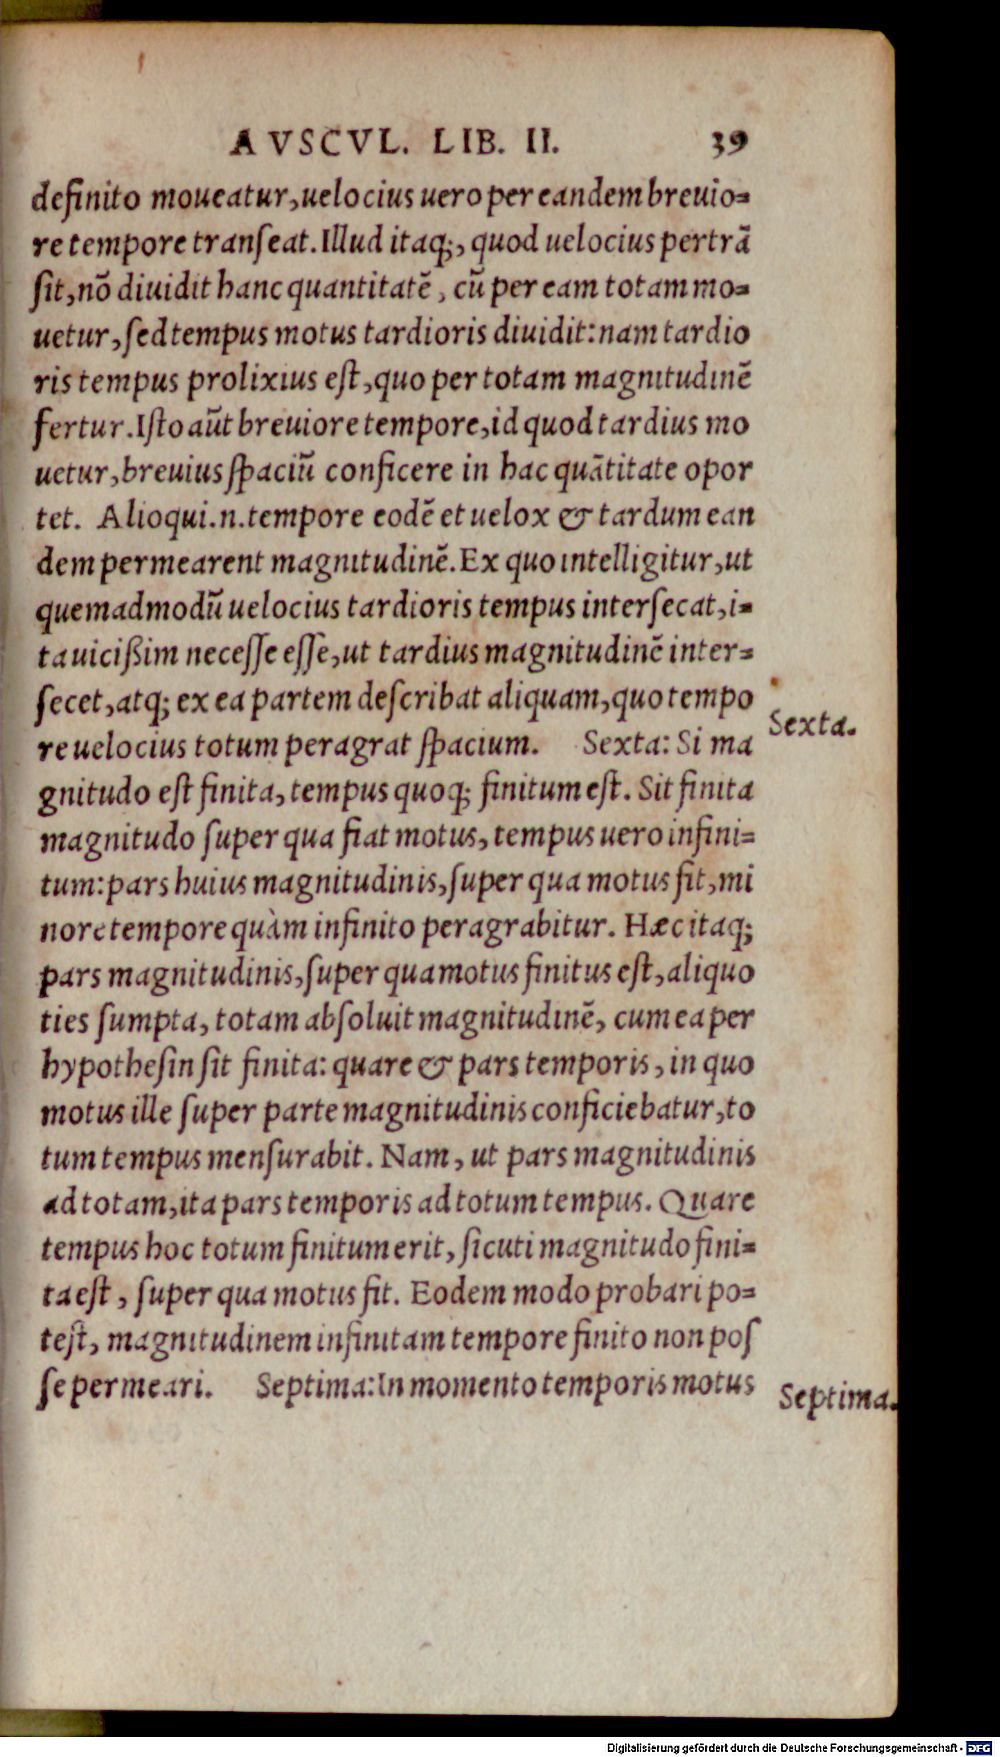 AVSCVL. LIB. II. 39
definito moueatur, uelocius uero per eandem breuio=
re tempore transeat. Illud itaq;, quod uelocius pertrã
sit, nõ diuidit hanc quantitatẽ, cũ per eam totam mo=
uetur, sed tempus motus tardioris diuidit: nam tardio
ris tempus prolixius est, quo per totam magnitudinẽ
fertur. Isto aũt breuiore tempore, id quod tardius mo
uetur, breuius spaciũ conficere in hac quãtitate opor
tet. Alioqui.n. tempore eodẽ et uelox & tardum ean
dem permearent magnitudinẽ. Ex quo intelligitur, ut
quemadmodũ uelocius tardioris tempus intersecat, i=
ta uicißim necesse esse, ut tardius magnitudinẽ inter=
secet, atq; ex ea partem describat aliquam, quo tempo
re uelocius totum peragrat spacium. Sexta: Si ma
Sexta.
gnitudo est finita, tempus quoq; finitum est. Sit finita
magnitudo super qua fiat motus, tempus uero infini=
tum: pars huius magnitudinis, super qua motus fit, mi
nore tempore quàm infinito peragrabitur. Hæc itaq;
pars magnitudinis, super qua motus finitus est, aliquo
ties sumpta, totam absoluit magnitudinẽ, cum ea per
hypothesin sit finita: quare & pars temporis, in quo
motus ille super parte magnitudinis conficiebatur, to
tum tempus mensurabit. Nam, ut pars magnitudinis
ad totam, ita pars temporis ad totum tempus. Quare
tempus hoc totum finitum erit, sicuti magnitudo fini=
ta est, super qua motus fit. Eodem modo probari po=
test, magnitudinem infinitam tempore finito non pos
se permeari. Septima: In momento temporis motus
Septima.
Digitalisierung gefördert durch die Deutsche Forschungsgemeinschaft - DFG